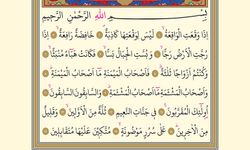 بِسْمِ اللهِ الرَّحْمٰنِ الرَّحِيمِ
اِذَا وَقَعَتِ الْوَاقِعَةُ لَيْسَ لِوَقْعَتِهَا كَاذِبَةٌ خَافِضَةٌ رَافِعَةٌ اِذَا
رُجَّتِ الْاَرْضُ رَجًّا وَبُسَّتِ الْجِبَالُ بَسًّا فَكَانَتْ هَبَاءً مُنْبَثًّا
وَكُنْتُمْ اَزْوَاجًا ثَلٰثَةً فَاَصْحَابُ الْمَيْمَنَةِ مَا اَصْحَابُ الْمَيْمَنَةِ
وَاَصْحَابُ الْمَشْئَمَةِ مَا اَصْحَابُ الْمَشْئَمَةِ وَالسَّابِقُونَ السَّابِقُونَ
اُولٰئِكَ الْمُقَرَّبُونَ فِي جَنَّاتِ النَّعِيمِ ثُلَّةٌ مِنَ الْاَوَّلِينَ وَقَلِيلٌ
مِنَ الْاٰخِرِينَ عَلٰى سُرُرٍ مَوْضُونَةٍ مُتَّكِئِينَ عَلَيْهَا مُتَقَابِلِينَ